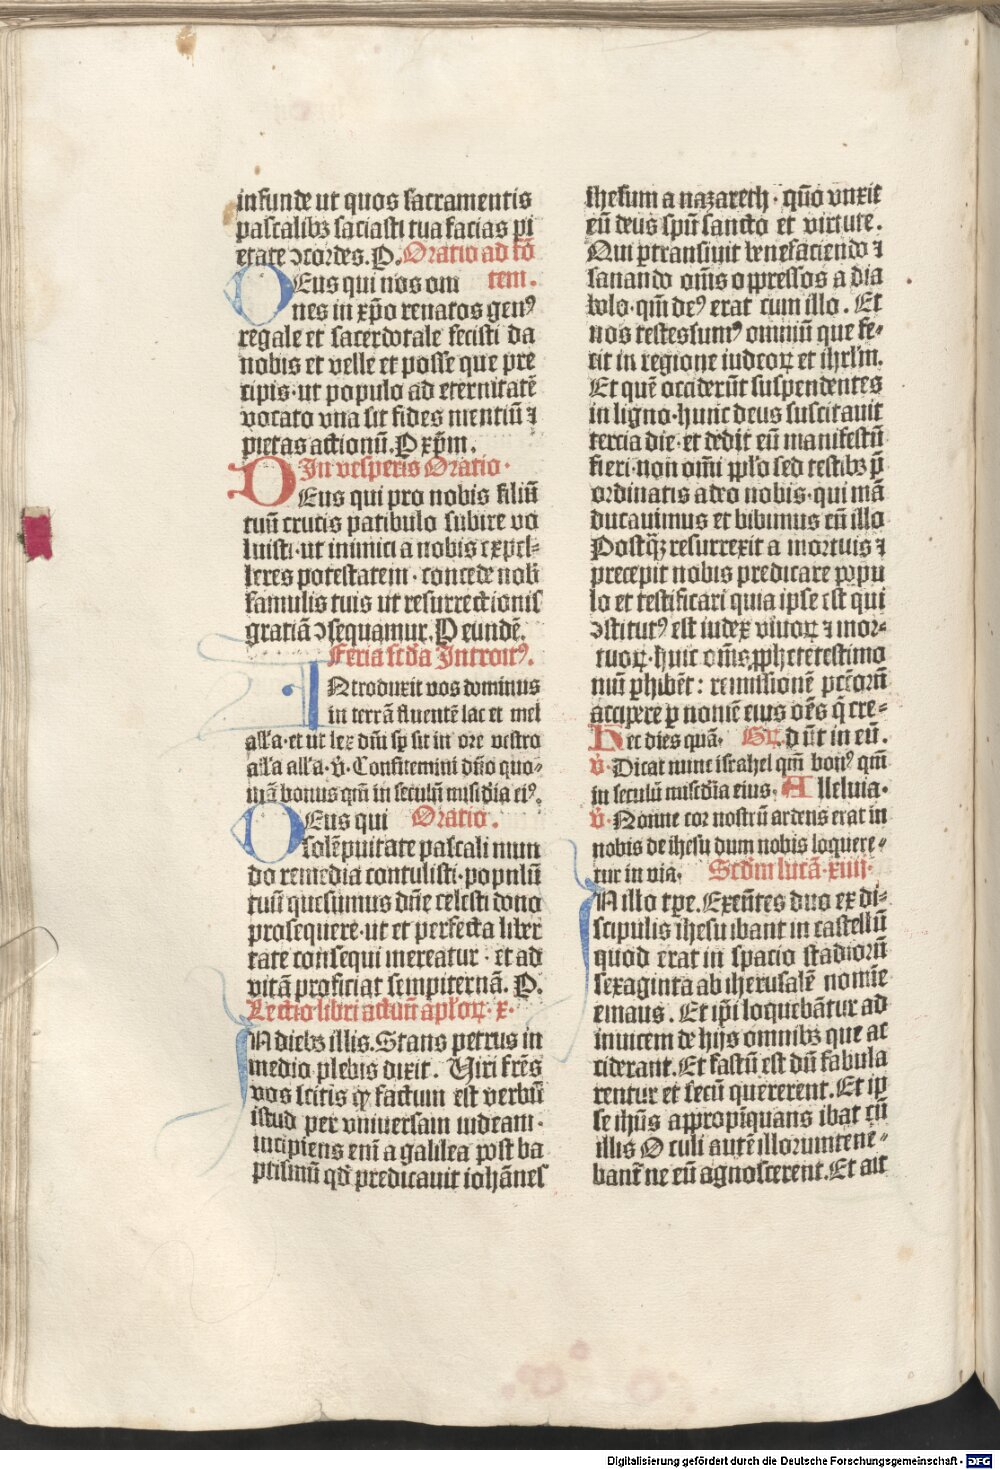 infunde ut quos sacramentis
pascalibꝫ saciasti tua facias pi
etate ↄcordes. P. Oratio ad fō
DEus qui nos om tem.
nes in xp̄o renatos genꝰ
regale et sacerdotale fecisti da
nobis et velle et posse que pre
cipis·ut populo ad eternitatē
vocato vna sit fides mentiū ⁊
pietas actionū. P xp̄m.
In vesperis Oratio·
DEus qui pro nobis filiū
tuū crucis patibulo subire vo
luisti·ut inimici a nobis expel-
leres potestatem· concede nob̄
famulis tuis ut resurrectionis
gratiā ↄsequamur. P eundē.
Feria scd̄a Introitꝰ.
INtroduxit vos dominus
in terrā fluentē lac et mel
all'a·et ut lex dn̄i sp̄ sit in ore vestro
all'a all'a·v̄· Confitemini dn̄o quo-
niā bonus qm̄ in seculū misc̄dia eiꝰ.
DEus qui Oratio.
solēpnitate pascali mun
do remedia contulisti·populū
tuū quesumus dn̄e celesti dono
prosequere·ut et perfecta liber
tate consequi mereatur· et ad
vitā proficiat sempiternā. P.
Lectio libri actuū apl'oꝝ·x·
IN diebꝫ illis. Stans petrus in
medio plebis dixit. Viri fr̄es
vos scitis qͥ factum est verbū
istud per vniuersam iudeam·
incipiens eni̅ a galilea post ba
ptismū qd̄ predicauit iohānes
ihesum a nazareth· quō vnxit
eū deus spū sancto et virtute.
Qui ꝑtransiuit benefaciendo ⁊
sanando om̄s oppressos a dia
bolo·qm̄ deꝰ erat cum illo. Et
nos testes sumꝰ omniū que fe-
cit in regione iudeoꝝ et ihrl'm.
Et quē occiderūt suspendentes
in ligno·hunc deus suscitauit
tercia die·et dedit eū manifestū
fieri·non om̄i ppl'o sed testibꝫ p̄
ordinatis a deo nobis·qui mā
ducauimus et bibimus cū illo
Postqꝫ resurrexit a mortuis ⁊
precepit nobis predicare popu
lo et testificari quia ipse est qui
ↄstitutꝰ est iudex viuoꝝ ⁊ mor-
tuoꝝ·huic om̄s prophete testimo
niū ꝑhibēt: remissionē pctōrū
accipere ꝑ nomē eius oēs q̄ cre-
Hec dies quā· Gr̄. dūt in eū.
v̄· Dicat nunc israhel qm̄ bonꝰ qm̄
in seculū misc̄dia eius. Alleluia·
v̄· Nonne cor nostrū ardens erat in
nobis de ihesu dum nobis loquere-
tur in via. Scd̄m lucā·xiiii·
IN illo tp̄e. Exeūtes duo ex di-
scipulis ihesu ibant in castellū
quod erat in spacio stadiorū
sexaginta ab iherusalē nomīe
emaus. Et ip̄i loquebātur ad
inuicem de hijs omnibꝫ que ac
ciderant. Et factū est dū fabula
rentur et secū quererent. Et ip
se ihūs appropīquans ibat cū
illis Oculi autē illorum tene-
bant̄ ne eū agnoscerent. Et ait
Digitalisierung gefördert durch die Deutsche Forschungsgemeinschaft - DFG